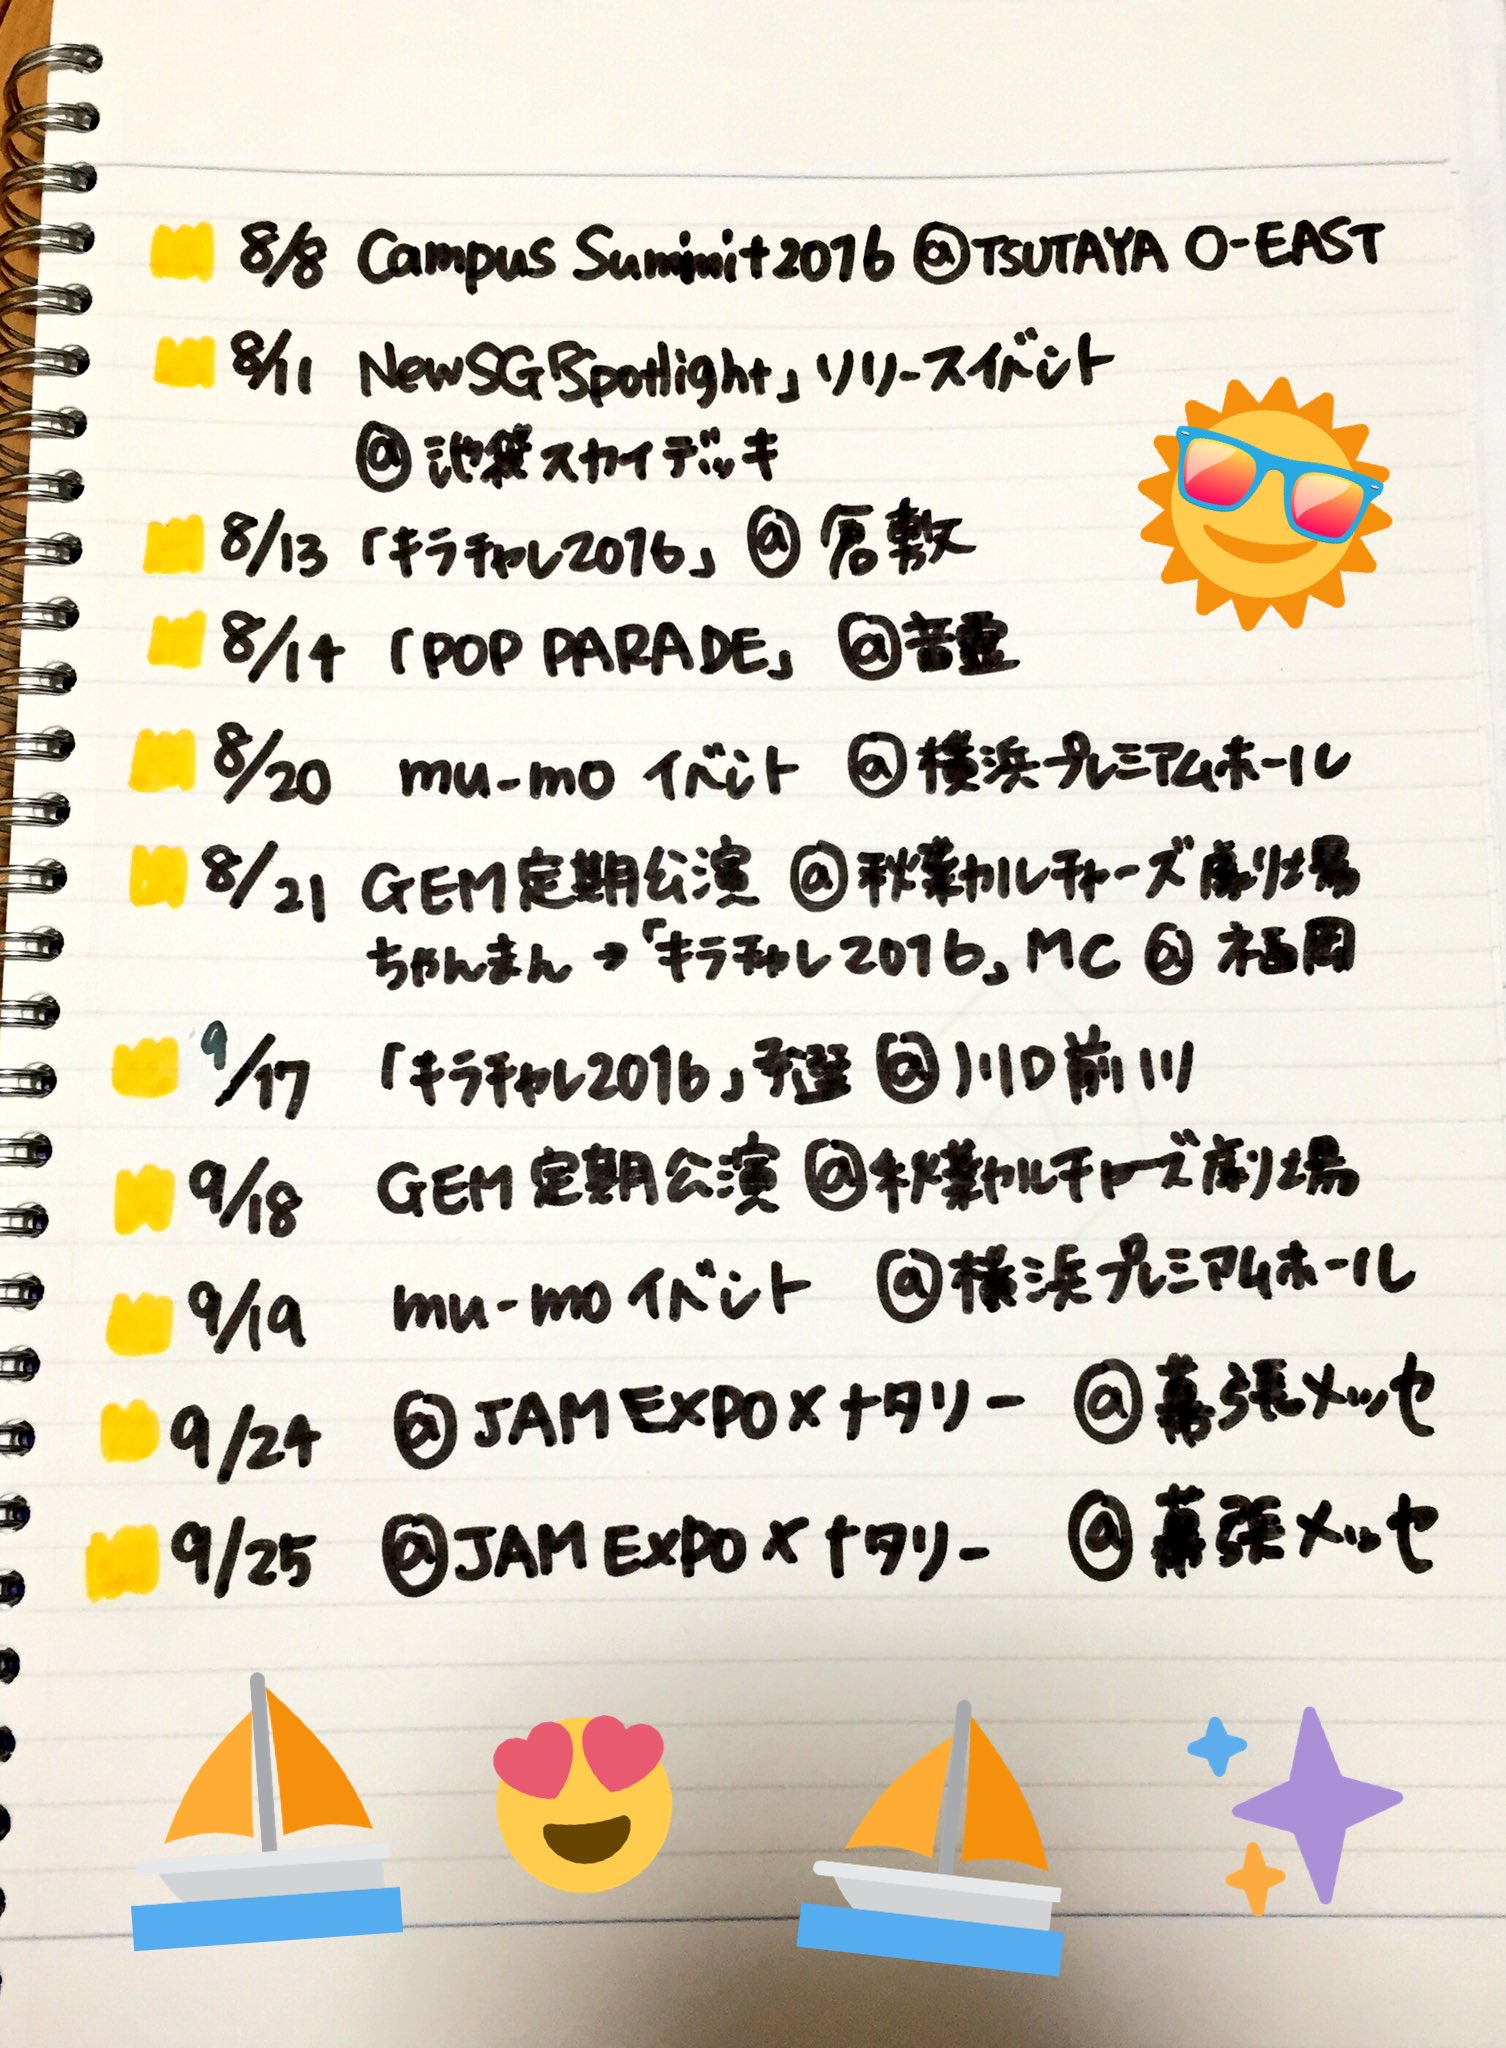 8/8 Campus Summit2016 @TSUTAYA O-EAST
8/11 NewSG「Spotlight」リリースイベント
@池袋スカイデッキ
8/13 「キラチャレ2016」 @ 倉敷
8/14 「POP PARADE」 @音霊
8/20 mu-mo イベント @横浜プレミアムホール
8/21 GEM定期公演 @秋葉カルチャーズ劇場
ちゃんまん→「キラチャレ2016」MC @ 福岡
9/17 「キラチャレ2016」予選 @川口前川
9/18 GEM定期公演 @秋葉カルチャーズ劇場
9/19 mu-mo イベント @横浜プレミアムホール
9/24 @JAM EXPO×ナタリー @幕張メッセ
9/25 @JAM EXPO×ナタリー @幕張メッセ